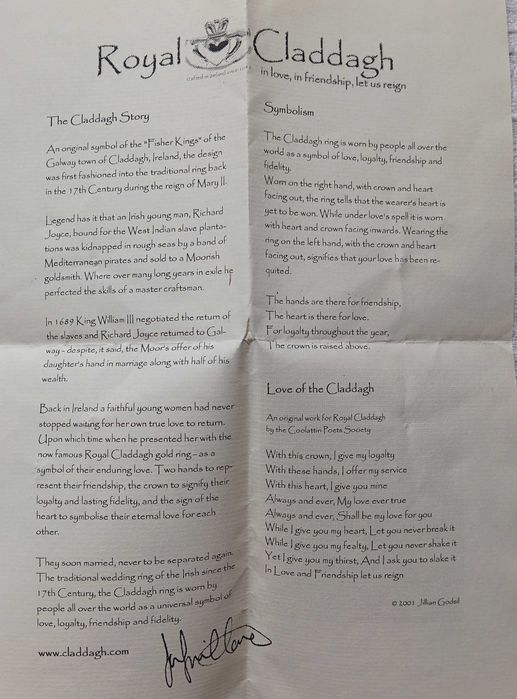 Royal Claddagh
in love, in friendship, let us reign
The Claddagh Story
An original symbol of the "Fisher Kings" of the
Galway town of Claddagh, Ireland, the design
was first fashioned into the traditional ring back
in the 17th Century during the reign of Mary II.
Legend has it that an Irish young man, Richard
Joyce, bound for the West Indian slave planta-
tions was kidnapped in rough seas by a band of
Mediterranean pirates and sold to a Moorish
goldsmith. Where over many long years in exile he
perfected the skills of a master craftsman.
In 1689 King William III negotiated the return of
the slaves and Richard Joyce returned to Gal-
way - despite, it said, the Moor's offer of his
daughter's hand in marriage along with half of his
wealth.
Back in Ireland a faithful young women had never
stopped waiting for her own true love to return.
Upon which time when he presented her with the
now famous Royal Claddagh gold ring - as a
symbol of their enduring love. Two hands to rep-
resent their friendship, the crown to signify their
loyalty and lasting fidelity, and the sign of the
heart to symbolise their eternal love for each
other.
They soon married, never to be separated again.
The traditional wedding ring of the Irish since the
17th Century, the Claddagh ring is worn by
people all over the world as a universal symbol of
love, loyalty, friendship and fidelity.
www.claddagh.com
Symbolism
The Claddagh ring is worn by people all over the
world as a symbol of love, loyalty, friendship and
fidelity.
Worn on the right hand, with crown and heart
facing out, the ring tells that the wearer's heart is
yet to be won. While under love's spell it is worn
with heart and crown facing inwards. Wearing the
ring on the left hand, with the crown and heart
facing out, signifies that your love has been re-
quited.
The hands are there for friendship,
The heart is there for love.
For loyalty throughout the year,
The crown is raised above.
Love of the Claddagh
An original work for Royal Claddagh
by the Coolattin Poets Society
With this crown, I give my loyalty
With these hands, I offer my service
With this heart, I give you mine
Always and ever, My love ever true
Always and ever, Shall be my love for you
While I give you my heart, Let you never break it
While I give you my fealty, Let you never shake it
Yet I give you my thirst, And I ask you to slake it
In Love and Friendship let us reign
© 2001 Jillian Godsil